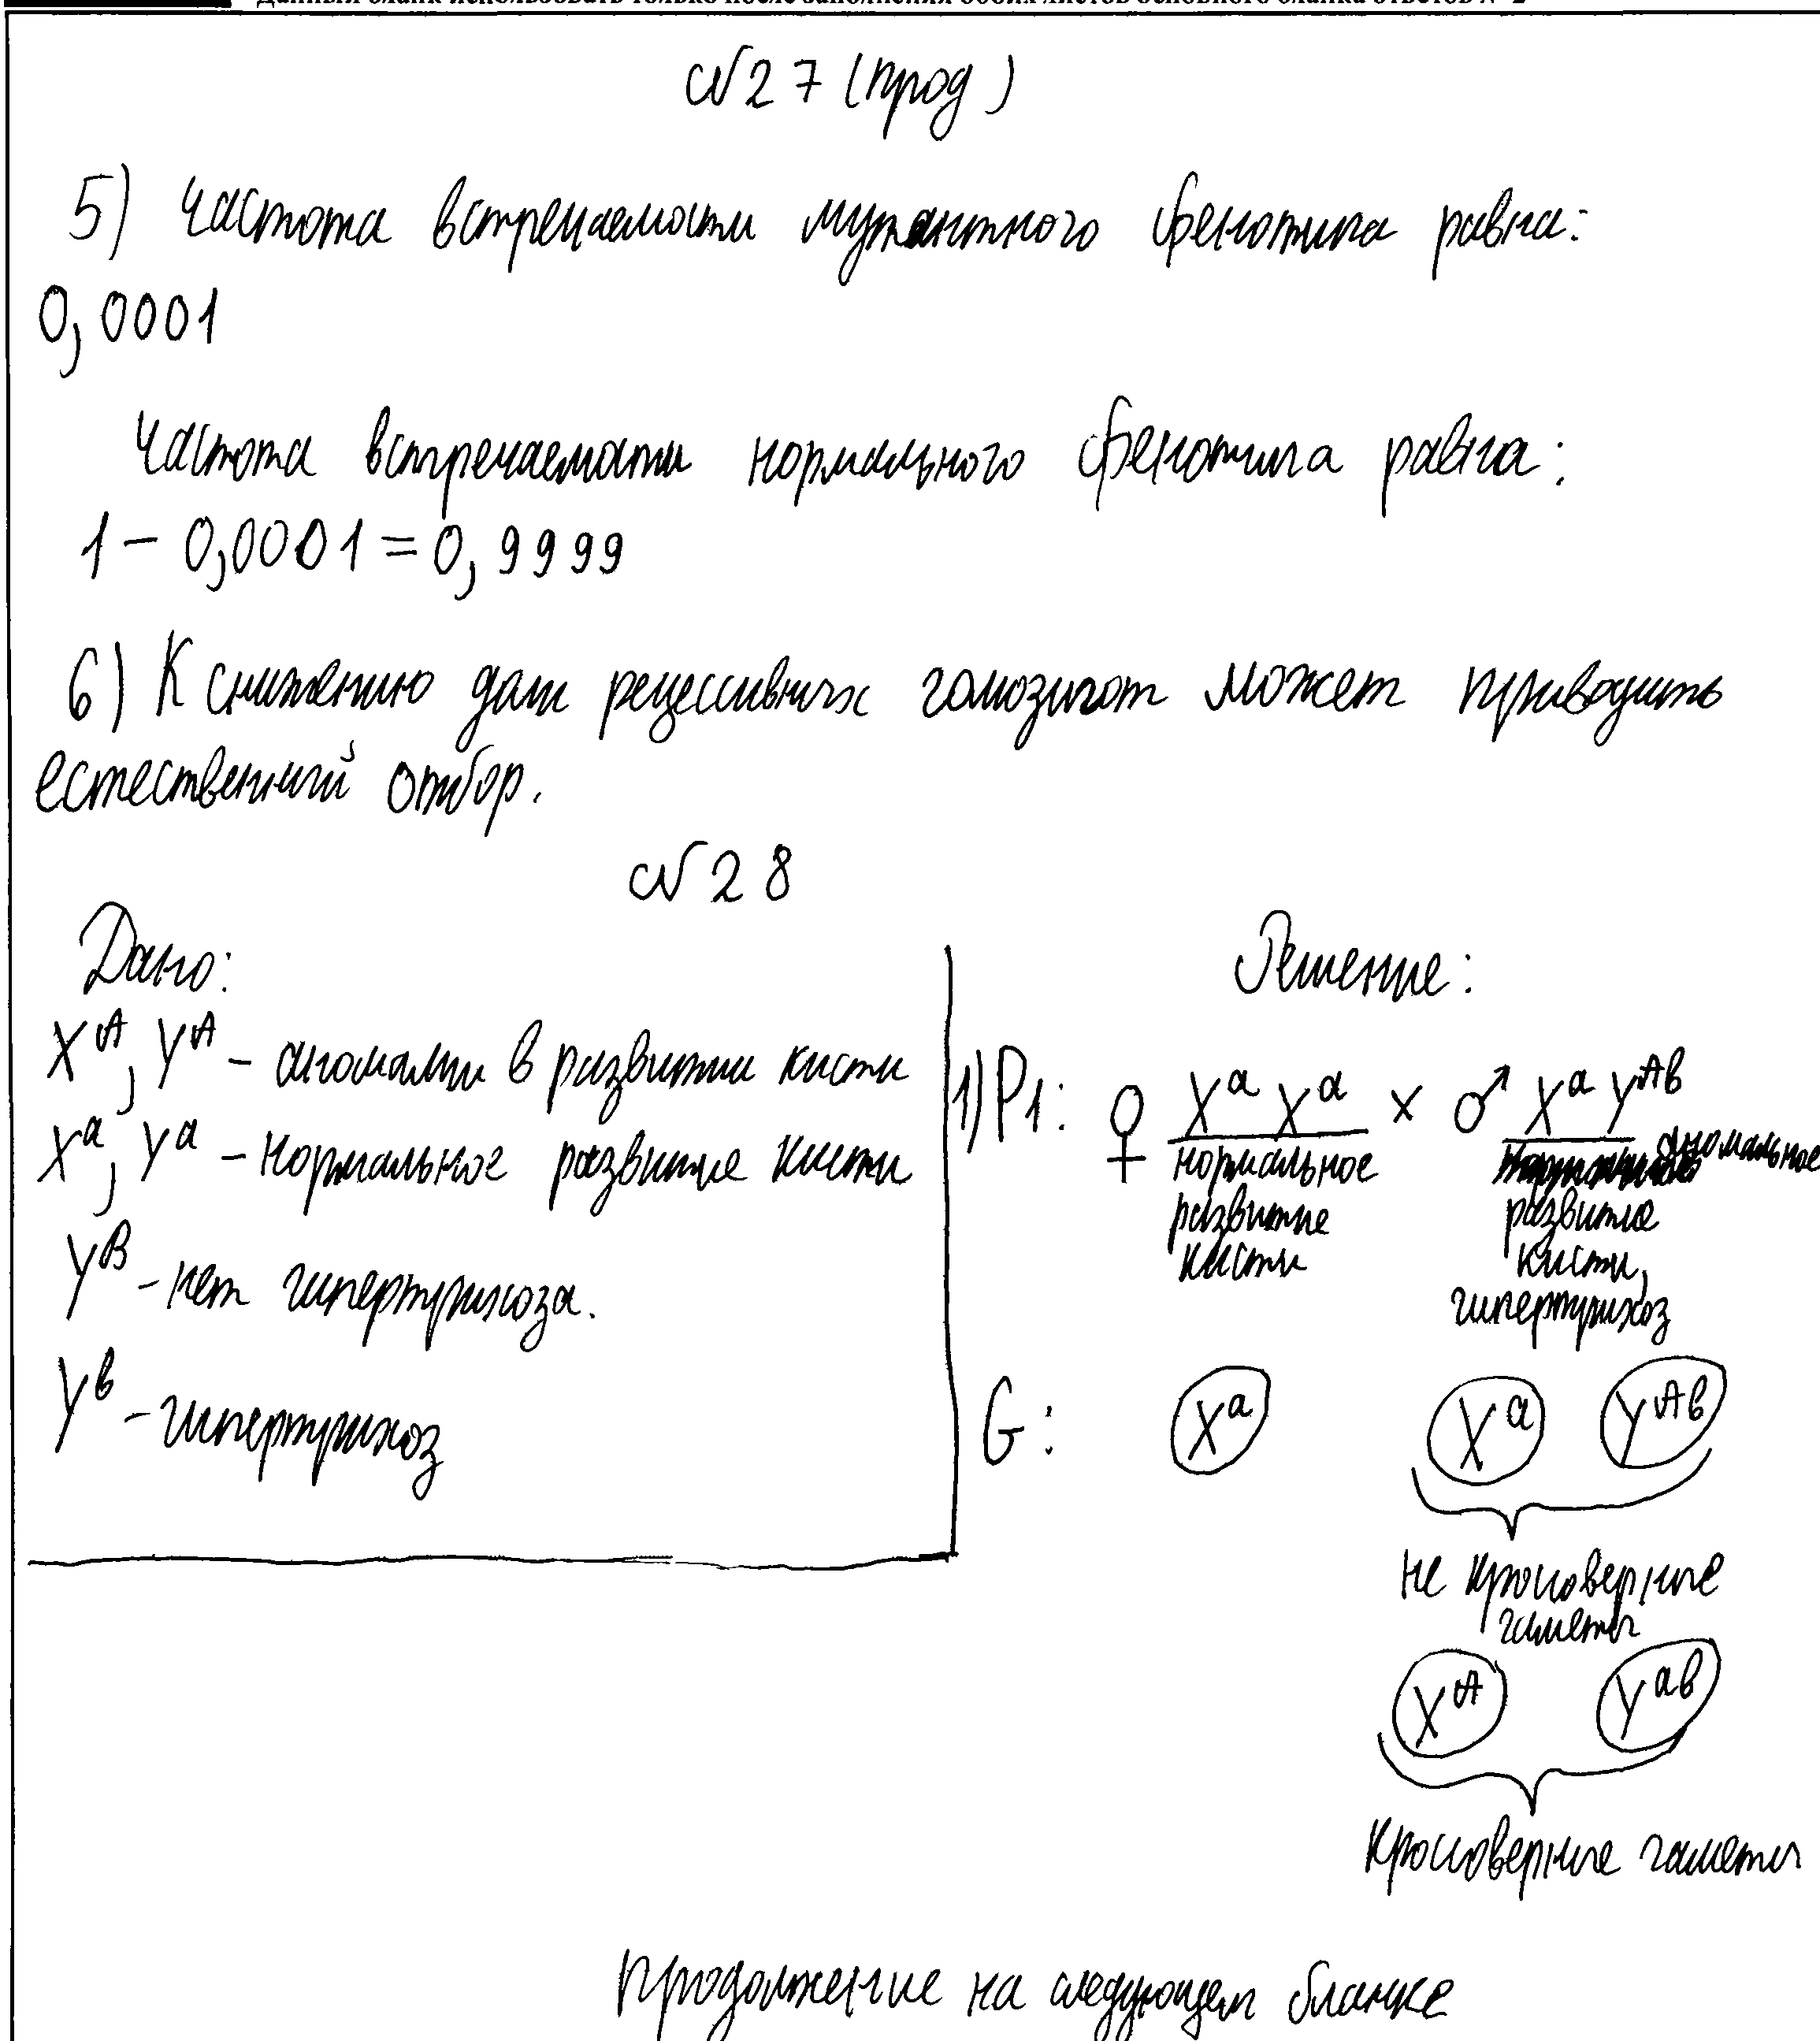 Данный бланк использовать только после заполнения обоих листов основного бланка ответов № 2
№27 (прод)
5) Частота встречаемости мутантного фенотипа равна:
0,0001
Частота встречаемости нормального фенотипа равна:
1 - 0,0001 = 0,9999
6) К снижению доли рецессивных гомозигот может приводить
естественный отбор.
№28
Дано:
X^A, Y^A - аномалии в развитии кисти
X^a, Y^a - нормальное развитие кисти
Y^B - нет гипертрихоза.
Y^b - гипертрихоз
Решение:
1) P1: ♀ X^a X^a × ♂ X^a Y^Ab
нормальное развитие кисти
аномальное развитие кисти, гипертрихоз
G: X^a X^a Y^Ab
не кроссоверные
гаметы
X^A Y^ab
кроссоверные гаметы
продолжение на следующем бланке